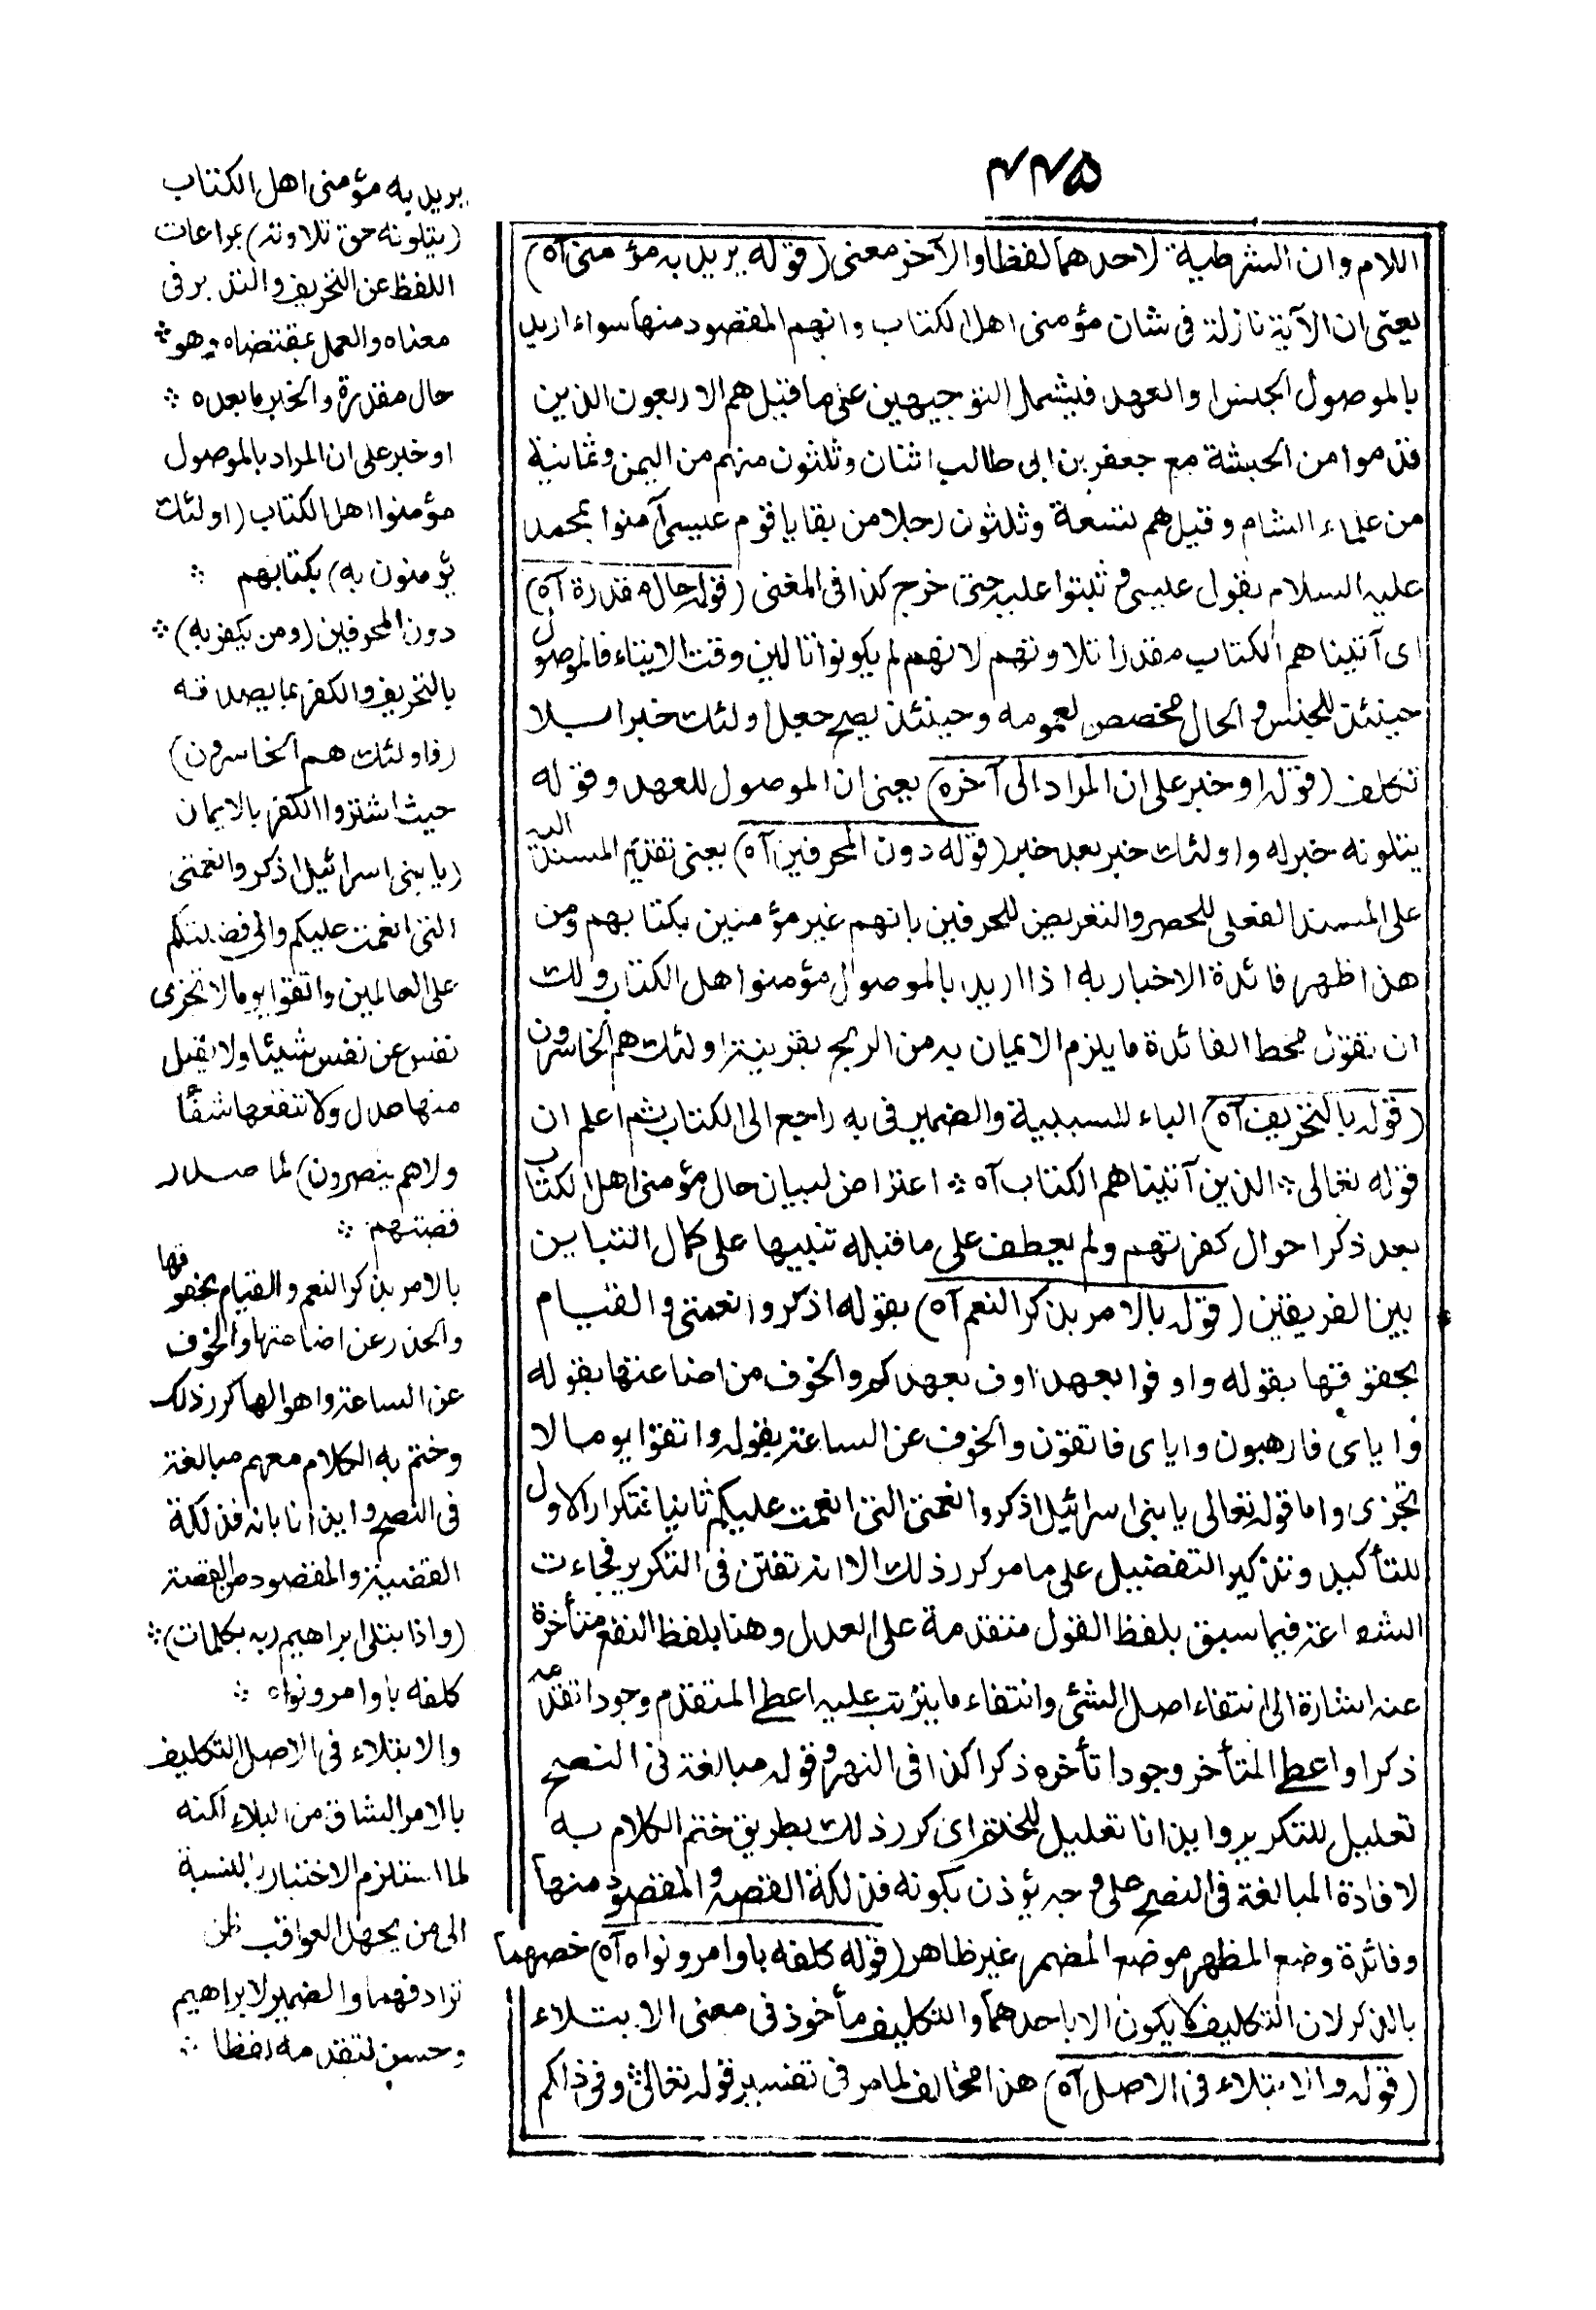 ٤٤٥
اللام وان الشرطية لاحدهما لفظا والآخر معنى (قوله يريد به مؤمنى آه)
يعنى ان الآية نازلة فى شان مؤمنى اهل الكتاب وانهم المقصود منها سواء اريد
بالموصول الجنس او العهد فيشمل التوجيهين على ما قيل هم الاربعون الذين
قدموا من الحبشة مع جعفر بن ابى طالب اثنان وثلثون منهم من اليمن وثمانية
من علماء الشام وقيل هم تسعة وثلثون رجلا من بقايا قوم عيسى آمنوا بمحمد
عليه السلام بقول عيسى وثبتوا عليه حتى خرج كذا فى المغنى (قوله حال مقدرة آه)
اى آتيناهم الكتاب مقدرا تلاوتهم لانهم لم يكونوا تالين وقت الايتاء فالموصول
حينئذ للجنس والحال مخصص لعمومه وحينئذ يصح جعل اولئك خبرا بلا
تكلف (قوله او خبر على ان المراد الى آخره) يعنى ان الموصول للعهد وقوله
يتلونه خبر له واولئك خبر بعد خبر (قوله دون المحرفين آه) يعنى تقديم المسند اليه
على المسند الفعلى للحصر والتعريض للمحرفين بانهم غير مؤمنين بكتابهم ومن
هذا ظهر فائدة الاخبار به اذا اريد بالموصول مؤمنوا اهل الكتاب ولك
ان تقول محط الفائدة ما يلزم الايمان به من الربح بقرينة اولئك هم الخاسرون
(قوله بالتحريف آه) الباء للسببية والضمير فى به راجع الى الكتاب ثم اعلم ان
قوله تعالى ؞ الذين آتيناهم الكتاب آه ؞ اعتراض لبيان حال مؤمنى اهل الكتاب
بعد ذكر احوال كفرتهم ولم يعطف على ما قبله تنبيها على كمال التباين
بين الفريقين (قوله بالامر بذكر النعم آه) بقوله اذكروا نعمتى والقيام
بحقوقها بقوله واوفوا بعهدى اوف بعهدكم والخوف من اضاعتها بقوله
وإياى فارهبون واياى فاتقون والخوف عن الساعة بقوله واتقوا يوما لا
تجزى واما قوله تعالى يا بنى اسرائيل اذكروا نعمتى التى انعمت عليكم ثانيا فتكرار الاول
للتأكيد وتذكير التفضيل على ما مر كرر ذلك الا انه تفنن فى التكرير فجاءت
الشفاعة فيما سبق بلفظ القول متقدمة على العدل وهنا بلفظ النفع متأخرة
عنه اشارة الى انتفاء اصل الشئ وانتفاء ما يترتب عليه اعطى المتقدم وجودا تقدمه
ذكرا واعطى المتأخر وجودا تأخره ذكرا كذا فى النهر وقوله مبالغة فى النصح
تعليل للتكرير وايذانا تعليل للختم اى كرر ذلك بطريق ختم الكلام به
لافادة المبالغة فى النصح على وجه يؤذن بكونه فذلكة القصة والمقصود منها
وفائدة وضع المظهر موضع المضمر غير ظاهر (قوله كلفه باوامر ونواه آه) خصهما
بالذكر لان التكليف لا يكون الا باحدهما والتكليف مأخوذ فى معنى الابتلاء
(قوله والابتلاء فى الاصل آه) هذا مخالف لما مر فى تفسير قوله تعالى وفى ذلكم
يريد به مؤمنى اهل الكتاب
(يتلونه حق تلاوته) بمراعات
اللفظ عن التحريف والتدبر فى
معناه والعمل بمقتضاه وهو ؞
حال مقدرة والخبر ما بعده ؞
او خبر على ان المراد بالموصول
مؤمنوا اهل الكتاب (اولئك
يؤمنون به) بكتابهم ؞
دون المحرفين (ومن يكفر به) ؞
بالتحريف والكفر بما يصدقه
(فاولئك هم الخاسرون)
حيث اشتروا الكفر بالايمان
(يا بنى اسرائيل اذكروا نعمتى
التى انعمت عليكم وانى فضلتكم
على العالمين واتقوا يوما لا تجزى
نفس عن نفس شيئا ولا يقبل
منها عدل ولا تنفعها شفا
ولا هم ينصرون) لما صدر
قصتهم ؞
بالامر بذكر النعم والقيام بحقوقها
والحذر عن اضاعتها والخوف
عن الساعة واهوالها كرر ذلك
وختم به الكلام معهم مبالغة
فى النصح وايذانا بانه فذلكة
القضية والمقصود من القصة
(واذ ابتلى ابراهيم ربه بكلمات) ؞
كلفه باوامر ونواه ؞
والابتلاء فى الاصل التكليف
بالامر الشاق من البلاء لكنه
لما استلزم الاختبار بالنسبة
الى من يجهل العواقب ظن
ترادفهما والضمير لابراهيم
وحسن لتقدمه لفظا ؞